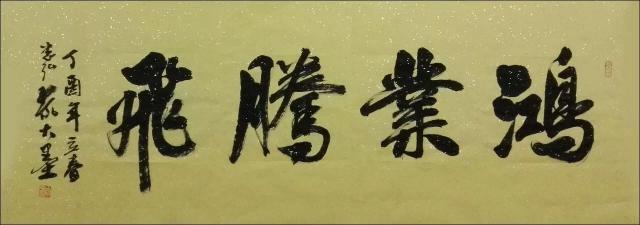 鴻業騰飛
丁酉年立春